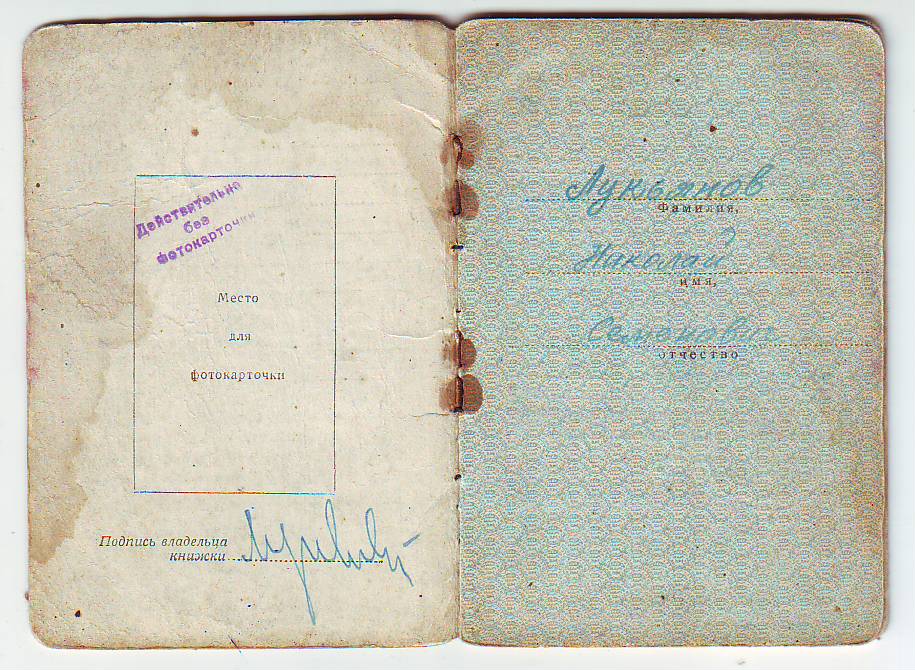 Действительно
без
фотокарточки
Место
для
фотокарточки
Подпись владельца
книжки
Лукьянов
Фамилия,
Николай
имя,
Семенович
отчество